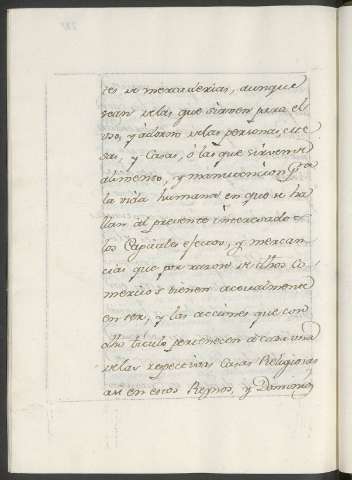 tes de mercaderias, aunque
sean de las que sirven para el
uso, y adorno de las personas, Ygle
sias, y Casas, ó las que sirven de
alimento, y manutencion pª
la vida humana en que se ha
llan al presente interesados
los Capitales efectos, y mercan
cias que por razon de dhos Co
mercios tienen actualmente
en ser, y las acciones que con
dho titulo pertenecen á cada una
de las respectivas Casas Religiosas
asi en estos Reynos, y Dominios